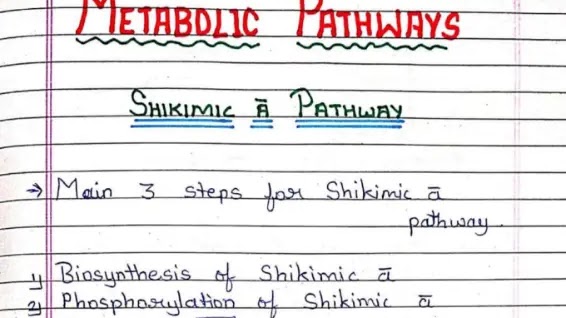 METABOLIC PATHWAYS
SHIKIMIC Ā PATHWAY
→ Main 3 steps for Shikimic ā
pathway.
1) Biosynthesis of Shikimic ā
2) Phosphorylation of Shikimic ā